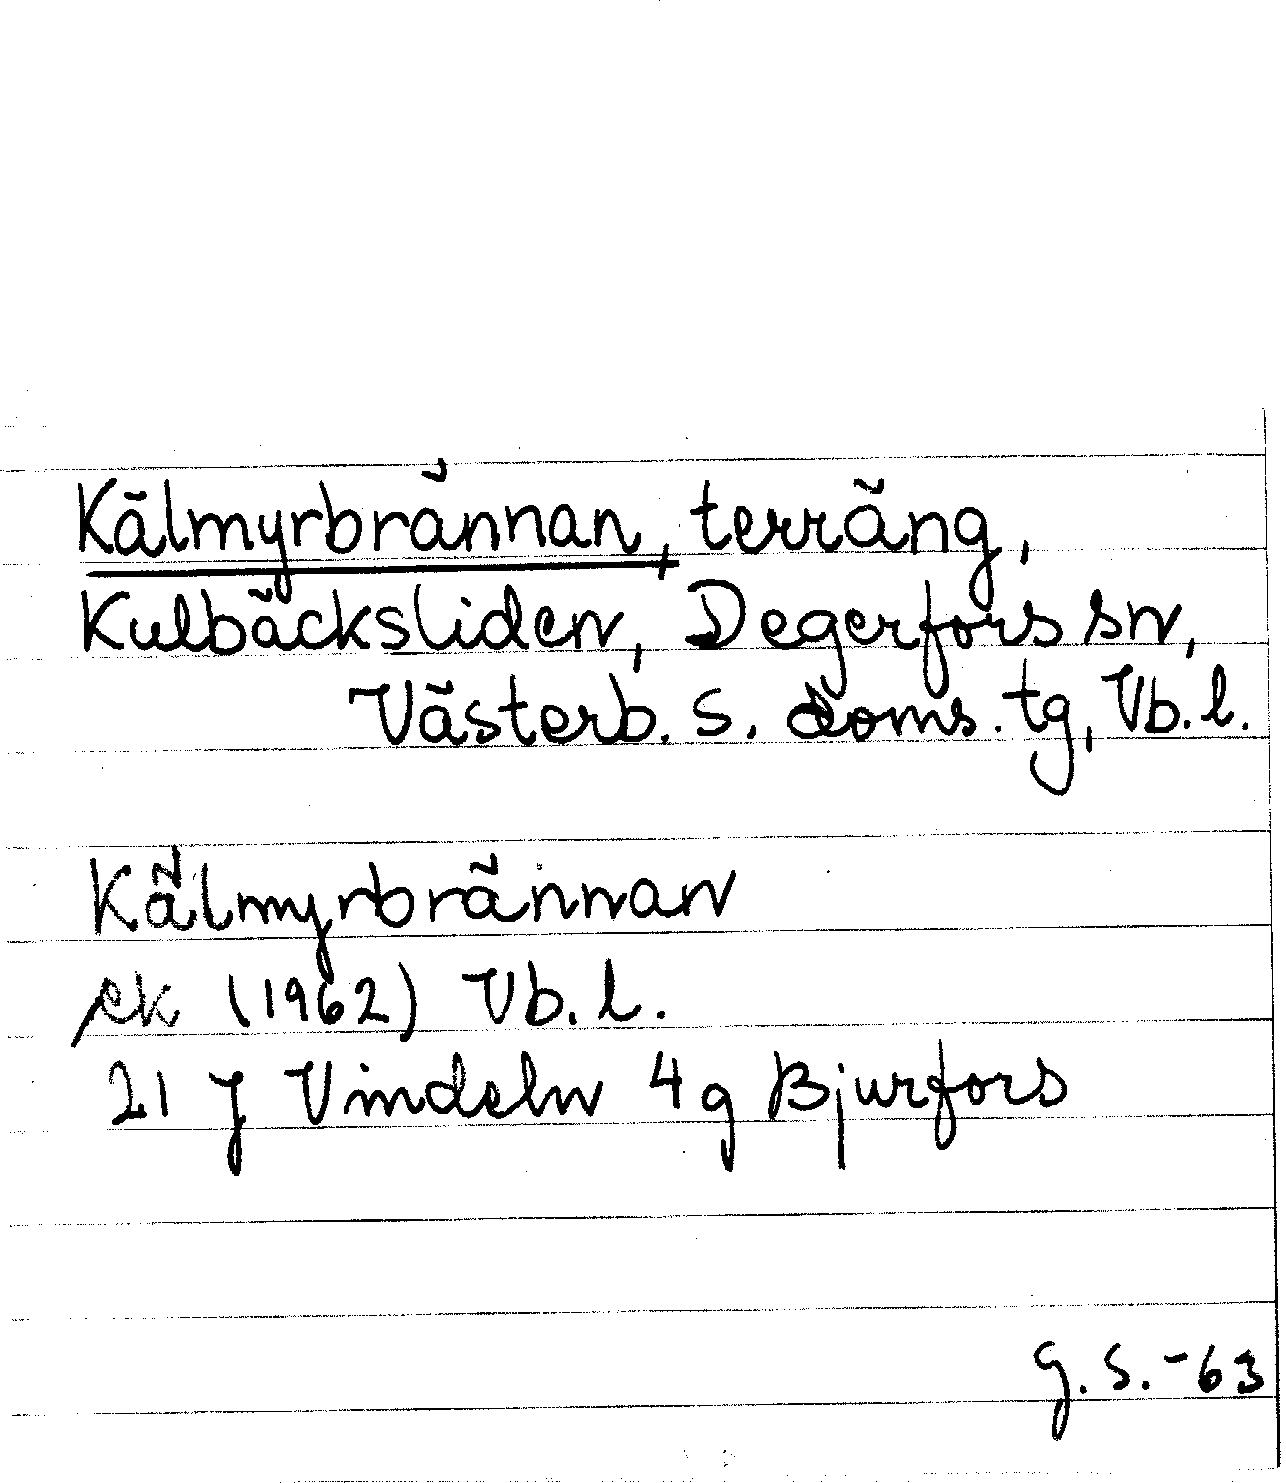 Kälmyrbrännan, terräng,
Kulbäcksliden, Degerfors sn,
Västerb. s. doms. tg, Vb. l.
Kälmyrbrännan
ek (1962) Vb. l.
21 J Vindeln 4 g Bjurfors
G. S. -63